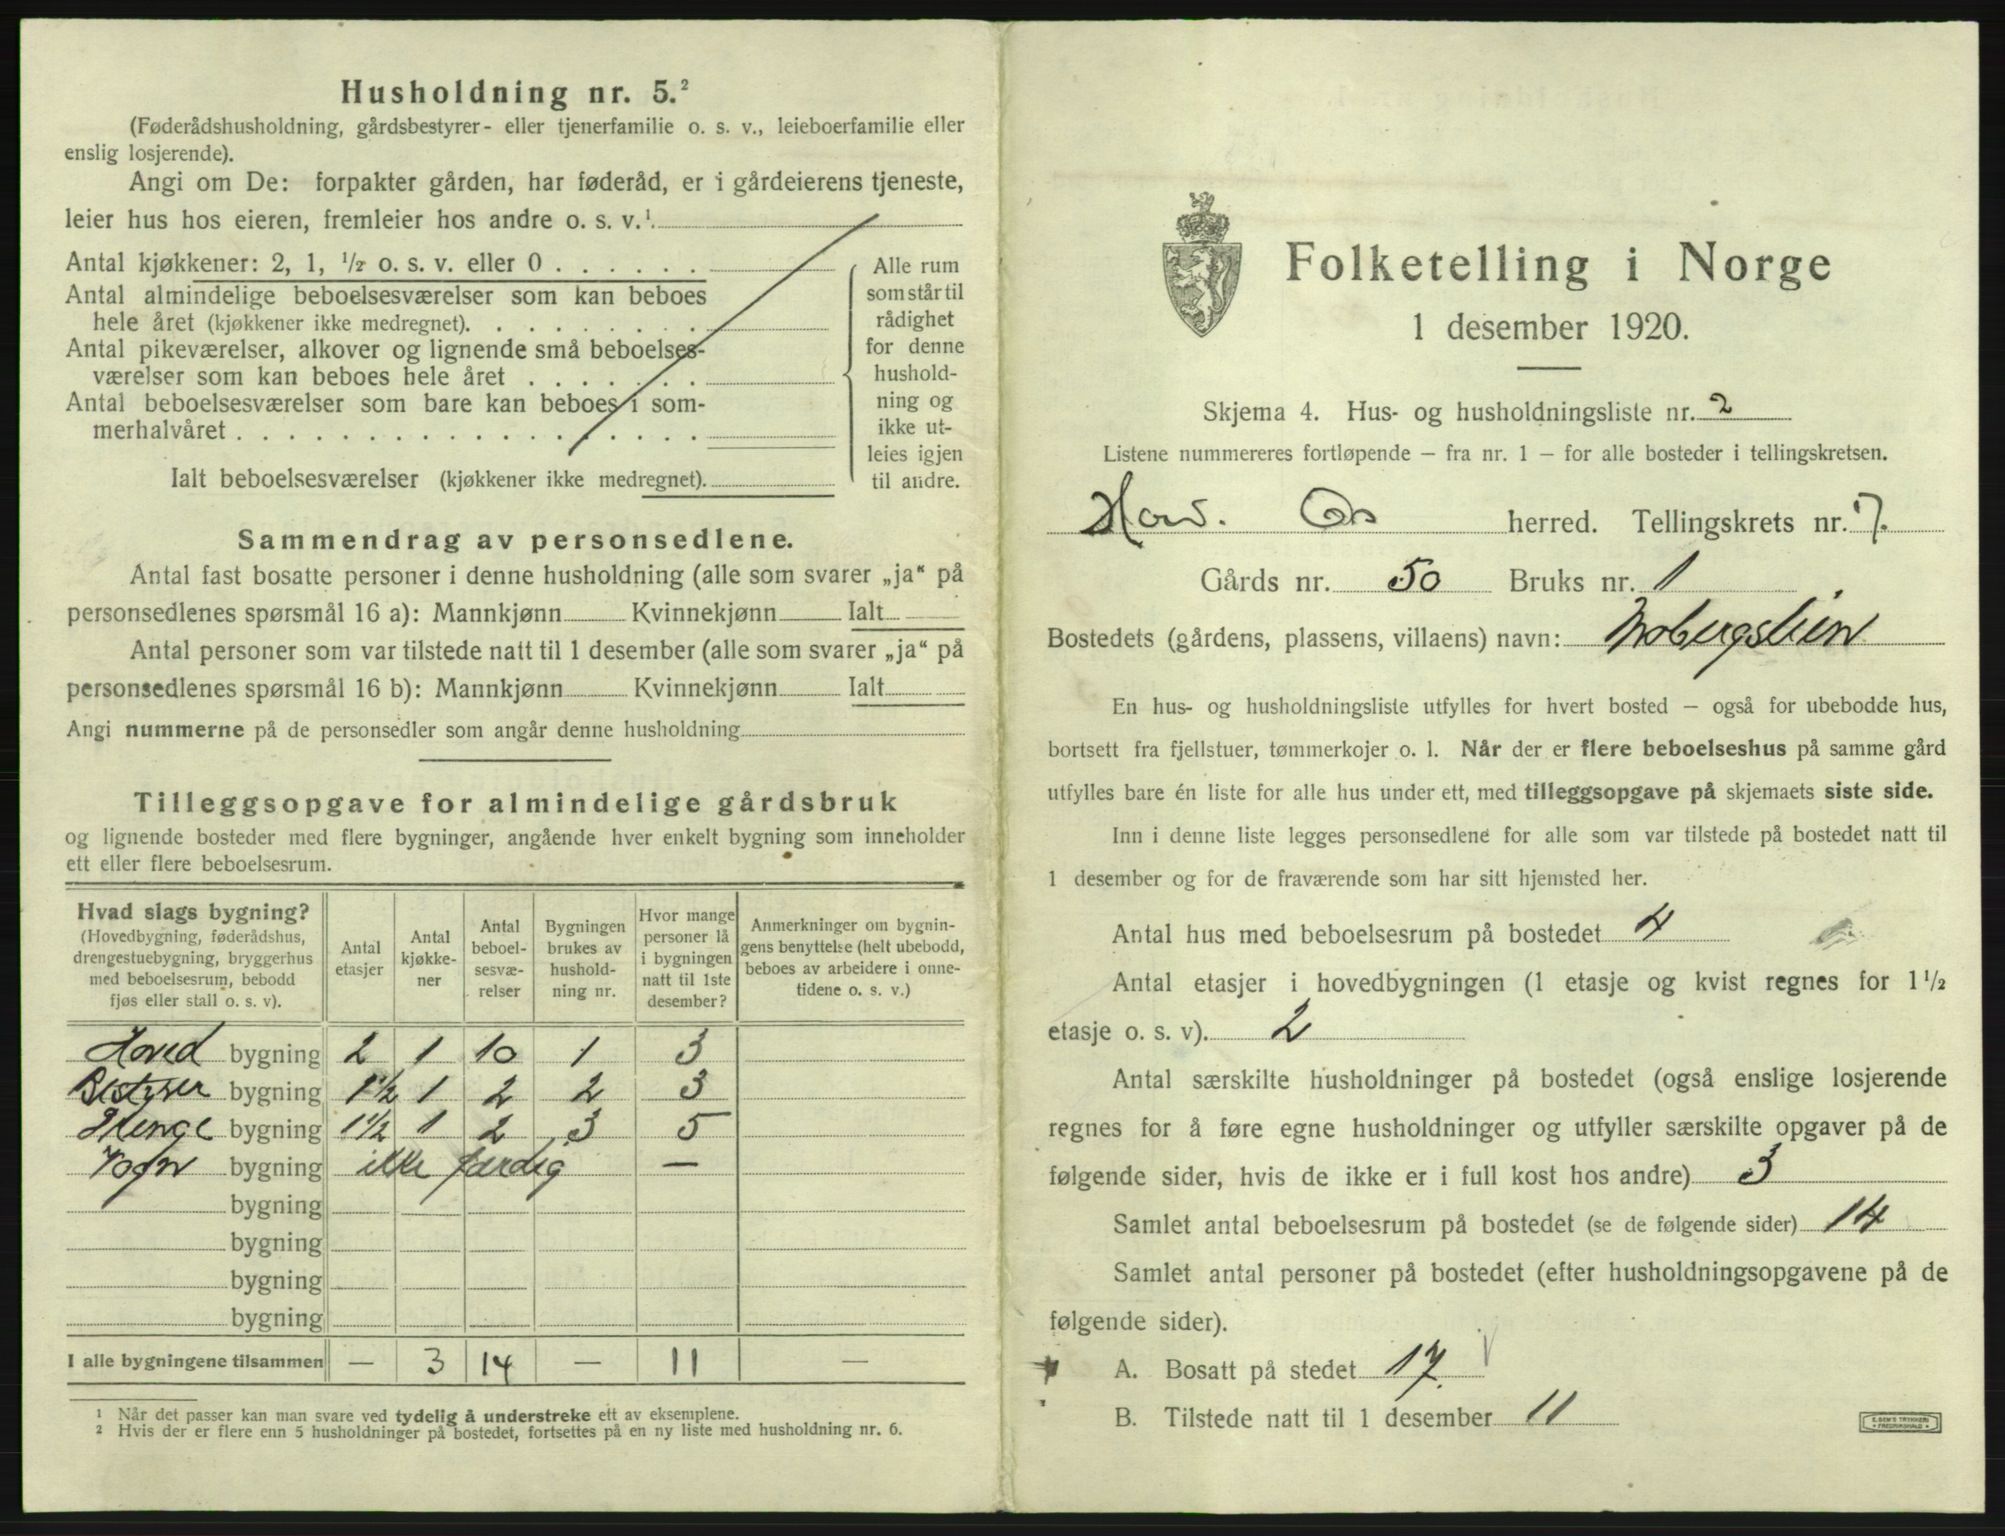 Husholdning nr. 5.²
(Føderådshusholdning, gårdsbestyrer- eller tjenerfamilie o. s. v., leieboerfamilie eller
enslig losjerende).
Angi om De: forpakter gården, har føderåd, er i gårdeierens tjeneste,
leier hus hos eieren, fremleier hos andre o. s. v.¹.
Antal kjøkkener: 2, 1, ½ o. s. v. eller 0 . . . . . .
Antal almindelige beboelsesværelser som kan beboes
hele året (kjøkkener ikke medregnet). . . . . . . . .
Antal pikeværelser, alkover og lignende små beboelses-
værelser som kan beboes hele året . . . . . . .
Antal beboelsesværelser som bare kan beboes i som-
merhalvåret . . . . . . . . . . . . . . . . . . .
Ialt beboelsesværelser (kjøkkener ikke medregnet).
Alle rum
som står til
rådighet
for denne
hushold-
ning og
ikke ut-
leies igjen
til andre.
Sammendrag av personsedlene.
Antal fast bosatte personer i denne husholdning (alle som svarer „ja“ på
personsedlenes spørsmål 16 a): Mannkjønn Kvinnekjønn Ialt
Antal personer som var tilstede natt til 1 desember (alle som svarer „ja“ på
personsedlenes spørsmål 16 b): Mannkjønn Kvinnekjønn Ialt
Angi nummerne på de personsedler som angår denne husholdning
Tilleggsopgave for almindelige gårdsbruk
og lignende bosteder med flere bygninger, angående hver enkelt bygning som inneholder
ett eller flere beboelsesrum.
Hvad slags bygning?
(Hovedbygning, føderådshus,
drengestuebygning, bryggerhus
med beboelsesrum, bebodd
fjøs eller stall o. s. v).
Antal
etasjer
Antal
kjøkke-
ner
Antal
beboel-
sesvæ-
relser
Bygningen
brukes av
hushold-
ning nr.
Hvor mange
personer lå
i bygningen
natt til 1ste
desember?
Anmerkninger om bygnin-
gens benyttelse (helt ubebodd,
beboes av arbeidere i onne-
tidene o. s. v.)
Hoved bygning 2 1 10 1 3
Bestyrer bygning 1½ 1 2 2 3
bygning 1½ 1 2 3 5
Vogn bygning ikke færdig —
bygning
bygning
bygning
bygning
I alle bygningene tilsammen — 3 14 — 11 —
¹ Når det passer kan man svare ved tydelig å understreke ett av eksemplene.
² Hvis der er flere enn 5 husholdninger på bostedet, fortsettes på en ny liste med husholdning nr. 6.
Folketelling i Norge
1 desember 1920.
Skjema 4. Hus- og husholdningsliste nr. 2
Listene nummereres fortløpende – fra nr. 1 – for alle bosteder i tellingskretsen.
Os herred. Tellingskrets nr. 7.
Gårds nr. 50 Bruks nr. 1
Bostedets (gårdens, plassens, villaens) navn: Mobergslien
En hus- og husholdningsliste utfylles for hvert bosted – også for ubebodde hus,
bortsett fra fjellstuer, tømmerkojer o. l. Når der er flere beboelseshus på samme gård
utfylles bare én liste for alle hus under ett, med tilleggsopgave på skjemaets siste side.
Inn i denne liste legges personsedlene for alle som var tilstede på bostedet natt til
1 desember og for de fraværende som har sitt hjemsted her.
Antal hus med beboelsesrum på bostedet 4
Antal etasjer i hovedbygningen (1 etasje og kvist regnes for 1½
etasje o. s. v). 2
Antal særskilte husholdninger på bostedet (også enslige losjerende
regnes for å føre egne husholdninger og utfyller særskilte opgaver på de
følgende sider, hvis de ikke er i full kost hos andre) 3
Samlet antal beboelsesrum på bostedet (se de følgende sider) 14
Samlet antal personer på bostedet (efter husholdningsopgavene på de
følgende sider).
A. Bosatt på stedet 17.
B. Tilstede natt til 1 desember 11